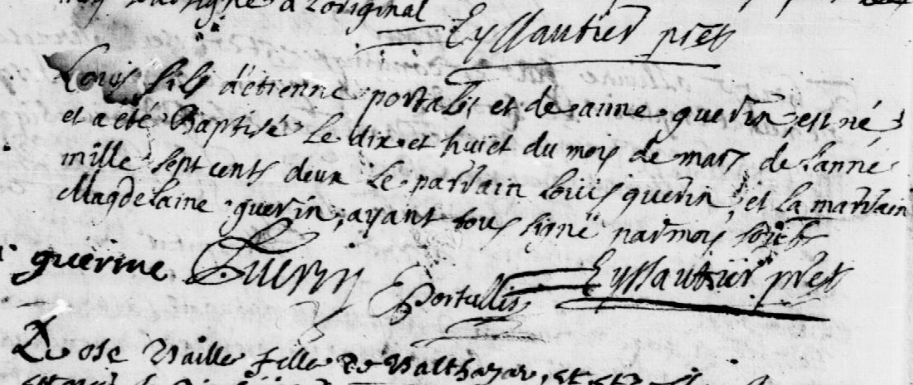 a l'original
Eyssautier pret
Louis fils d'etienne portalis et de anne guerin, est né
et a été Baptisé le dix et huict du mois de mars de l'anné
mille sept cents deux le parrain louis guerin, et la marrain
Magdelaine guerin, ayant tous signé par moy
guerine Guerin Portallis Eyssautier pret
Rose Vaille fille de Balthazar, et